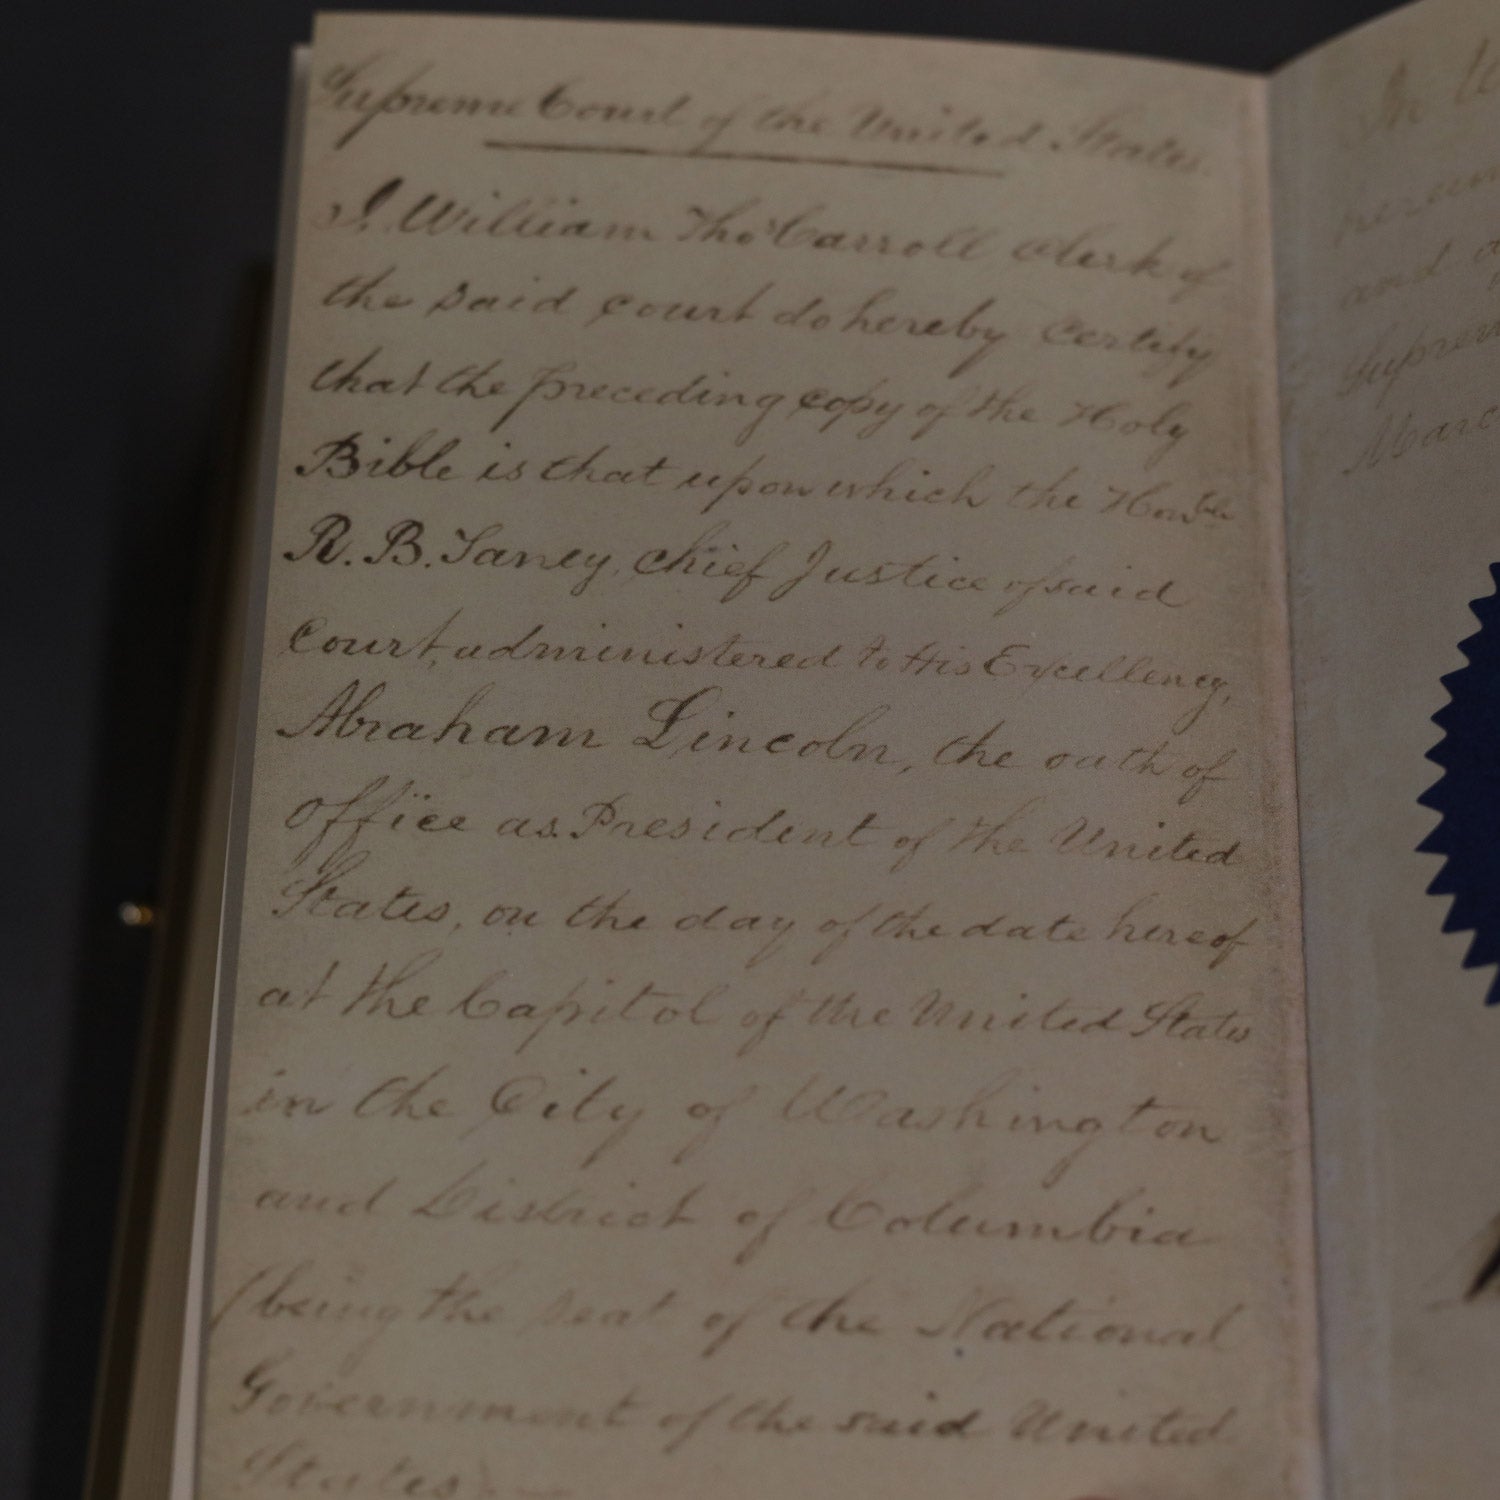 Supreme Court of the United States.
I, William Thos Carroll clerk of
the said court do hereby certify
that the preceding copy of the Holy
Bible is that upon which the Honble
R. B. Taney, chief Justice of said
court, administered to His Excellency,
Abraham Lincoln, the oath of
office as President of the United
States, on the day of the date hereof
at the Capitol of the United States
in the City of Washington
and District of Columbia
(being the seat of the National
Government of the said United
States
In
and